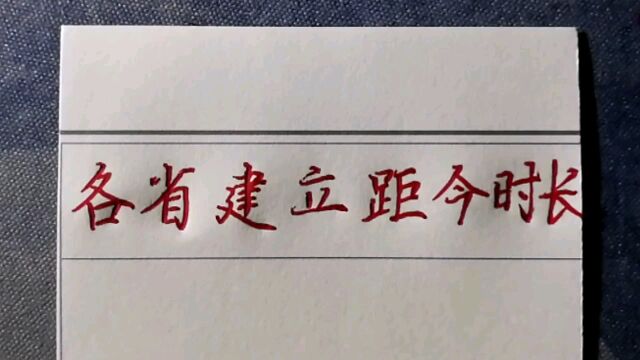 各省建立距今时长